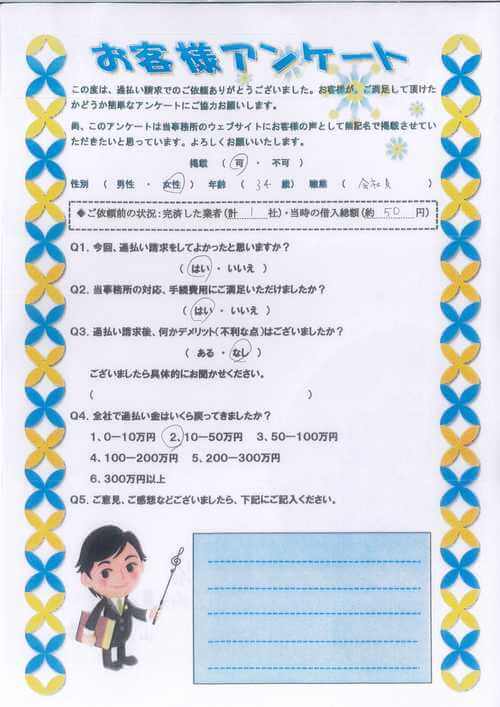 お客様アンケート
この度は、過払い請求でのご依頼ありがとうございました。お客様が、ご満足して頂けた
かどうか簡単なアンケートにご協力お願いします。
尚、このアンケートは当事務所のウェブサイトにお客様の声として無記名で掲載させてい
ただきたいと思っています。よろしくお願いいたします。
掲載 ( 可 ・ 不可 )
性別 ( 男性 ・ 女性 ) 年齢 ( 34 歳 ) 職業 ( 会社員 )
◆ご依頼前の状況:完済した業者(計 1 社)・当時の借入総額(約 50 円)
Q1. 今回、過払い請求をしてよかったと思いますか?
( はい ・ いいえ )
Q2. 当事務所の対応、手続費用にご満足いただけましたか?
( はい ・ いいえ )
Q3. 過払い請求後、何かデメリット(不利な点)はございましたか?
( ある ・ なし )
ございましたら具体的にお聞かせください。
( )
Q4. 全社で過払い金はいくら戻ってきましたか?
1、0-10万円 2、10-50万円 3、50-100万円
4、100-200万円 5、200-300万円
6、300万円以上
Q5. ご意見、ご感想などございましたら、下記にご記入ください。